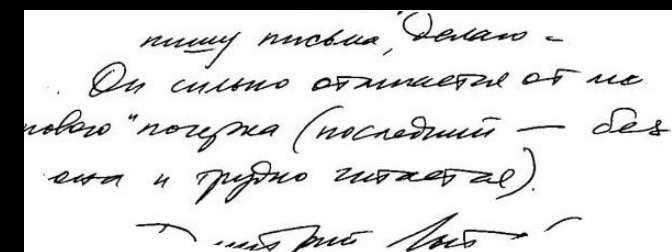 пишу письма, делаю -
Он сильно отличается от мо
нового" почерка (последний — без
она и трудно читается).
Дмитрий